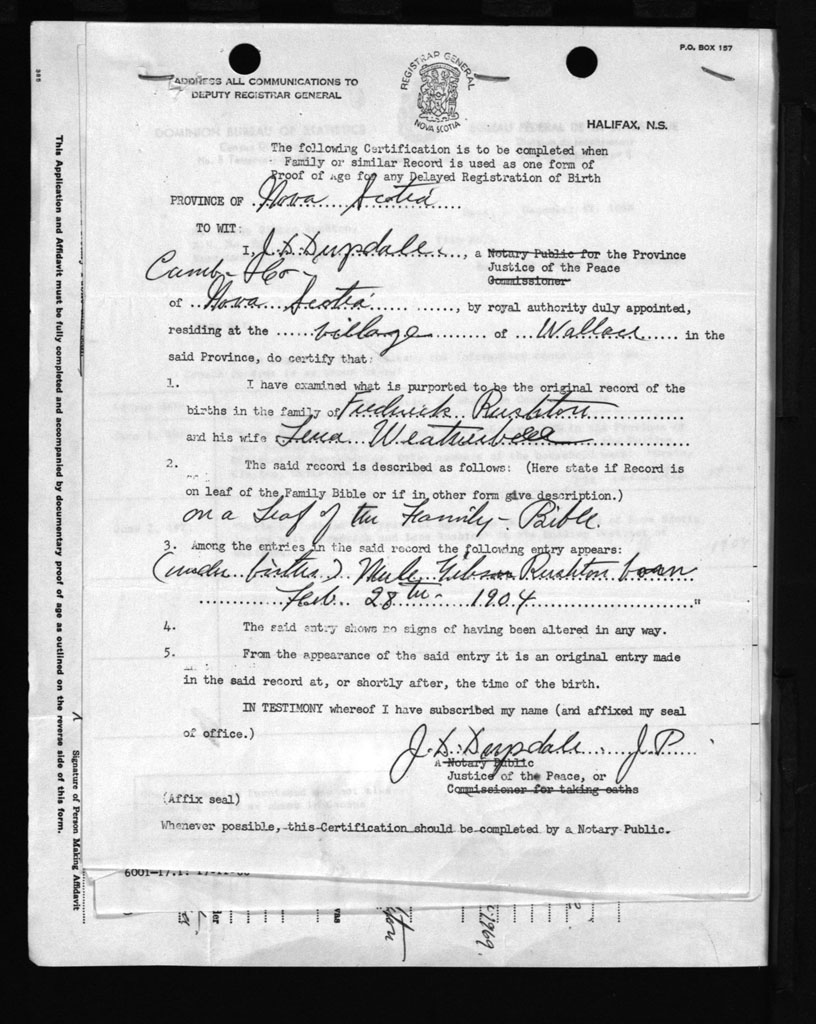 P.O. BOX 157
ADDRESS ALL COMMUNICATIONS TO
DEPUTY REGISTRAR GENERAL
REGISTRAR GENERAL
NOVA SCOTIA
HALIFAX, N.S.
The following Certification is to be completed when
Family or similar Record is used as one form of
Proof of Age for any Delayed Registration of Birth
PROVINCE OF Nova Scotia
TO WIT:
I, J. D. Drysdale, a Notary Public for the Province
Cumb- Co- Justice of the Peace
Commissioner
of Nova Scotia, by royal authority duly appointed,
residing at the village of Wallace in the
said Province, do certify that:
1. I have examined what is purported to be the original record of the
births in the family of Frederick Rushton
and his wife Lena Weatherbee
2. The said record is described as follows: (Here state if Record is
on leaf of the Family Bible or if in other form give description.)
on a Leaf of the Family - Bible.
3. Among the entries in the said record the following entry appears:
(under births) Gibson Rushton born
Feb. 28th - 1904"
4. The said entry shows no signs of having been altered in any way.
5. From the appearance of the said entry it is an original entry made
in the said record at, or shortly after, the time of the birth.
IN TESTIMONY whereof I have subscribed my name (and affixed my seal
of office.)
J. D. Drysdale J.P.
A Notary Public
Justice of the Peace, or
Commissioner for taking oaths
(Affix seal)
Whenever possible, this Certification should be completed by a Notary Public.
This Application and Affidavit must be fully completed and accompanied by documentary proof of age as outlined on the reverse side of this form.
Signature of Person Making Affidavit